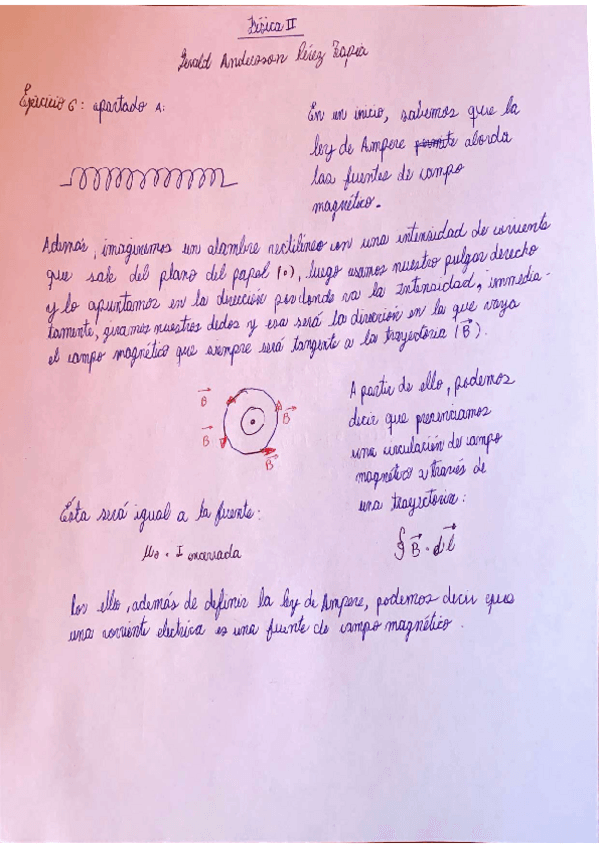 Física II
Gerald Anderson Pérez Tapia
Ejercicio 6: apartado A:
En un inicio, sabemos que la
ley de Ampere permite aborda
las fuentes de campo
magnético.
Además, imaginemos un alambre rectilíneo con una intensidad de corriente
que sale del plano del papel (•), luego usamos nuestro pulgar derecho
y lo apuntamos en la dirección por donde va la Intensidad, inmedia-
tamente, giramos nuestros dedos y esa será la dirección en la que vaya
el campo magnético que siempre será tangente a la trayectoria (B⃗).
A partir de ello, podemos
decir que presenciamos
una circulación de campo
magnético a través de
una trayectoria:
B⃗
B⃗
B⃗
B⃗
Ésta será igual a la fuente:
μ₀ · I encerrada
∮ B⃗ · dl⃗
Por ello, además de definir la ley de Ampere, podemos decir que
una corriente electrica es una fuente de campo magnético.